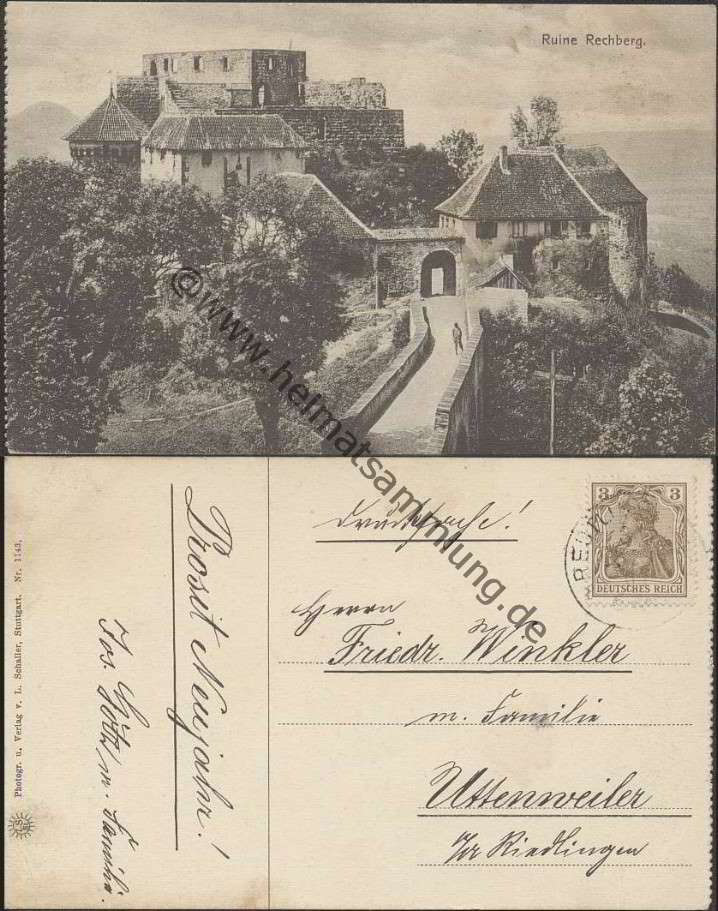 Ruine Rechberg.
©www.heimatsammlung.de
Photogr. u. Verlag v. L. Schaller, Stuttgart. Nr. 1143.
Prosit Neujahr!
Jos. Götz m. Familie.
Drucksache!
3 3
DEUTSCHES REICH
Herrn
Friedr. Winkler
m. Familie
Uttenweiler
Riedlingen